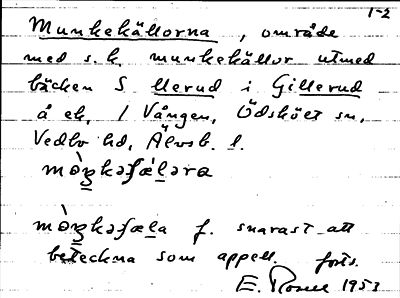 1-2
Munkekällorna, område
med s.k. munkekällor utmed
bäcken S Ulerud i Gillerud
å ek. / Vången, Ödskölt sn,
Vedbo hd, Älvsb. l.
mòŋkəʃæ̀ləra
mòŋkəʃæla f. snarast att
beteckna som appell. forts.
E. Rosell 1953